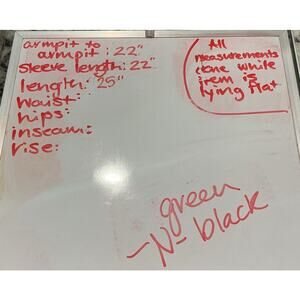 armpit to
armpit : 22"
sleeve length: 22"
length: 25"
waist:
hips:
inseam:
rise:
All
measurements
done while
item is
lying flat
green
-N- black